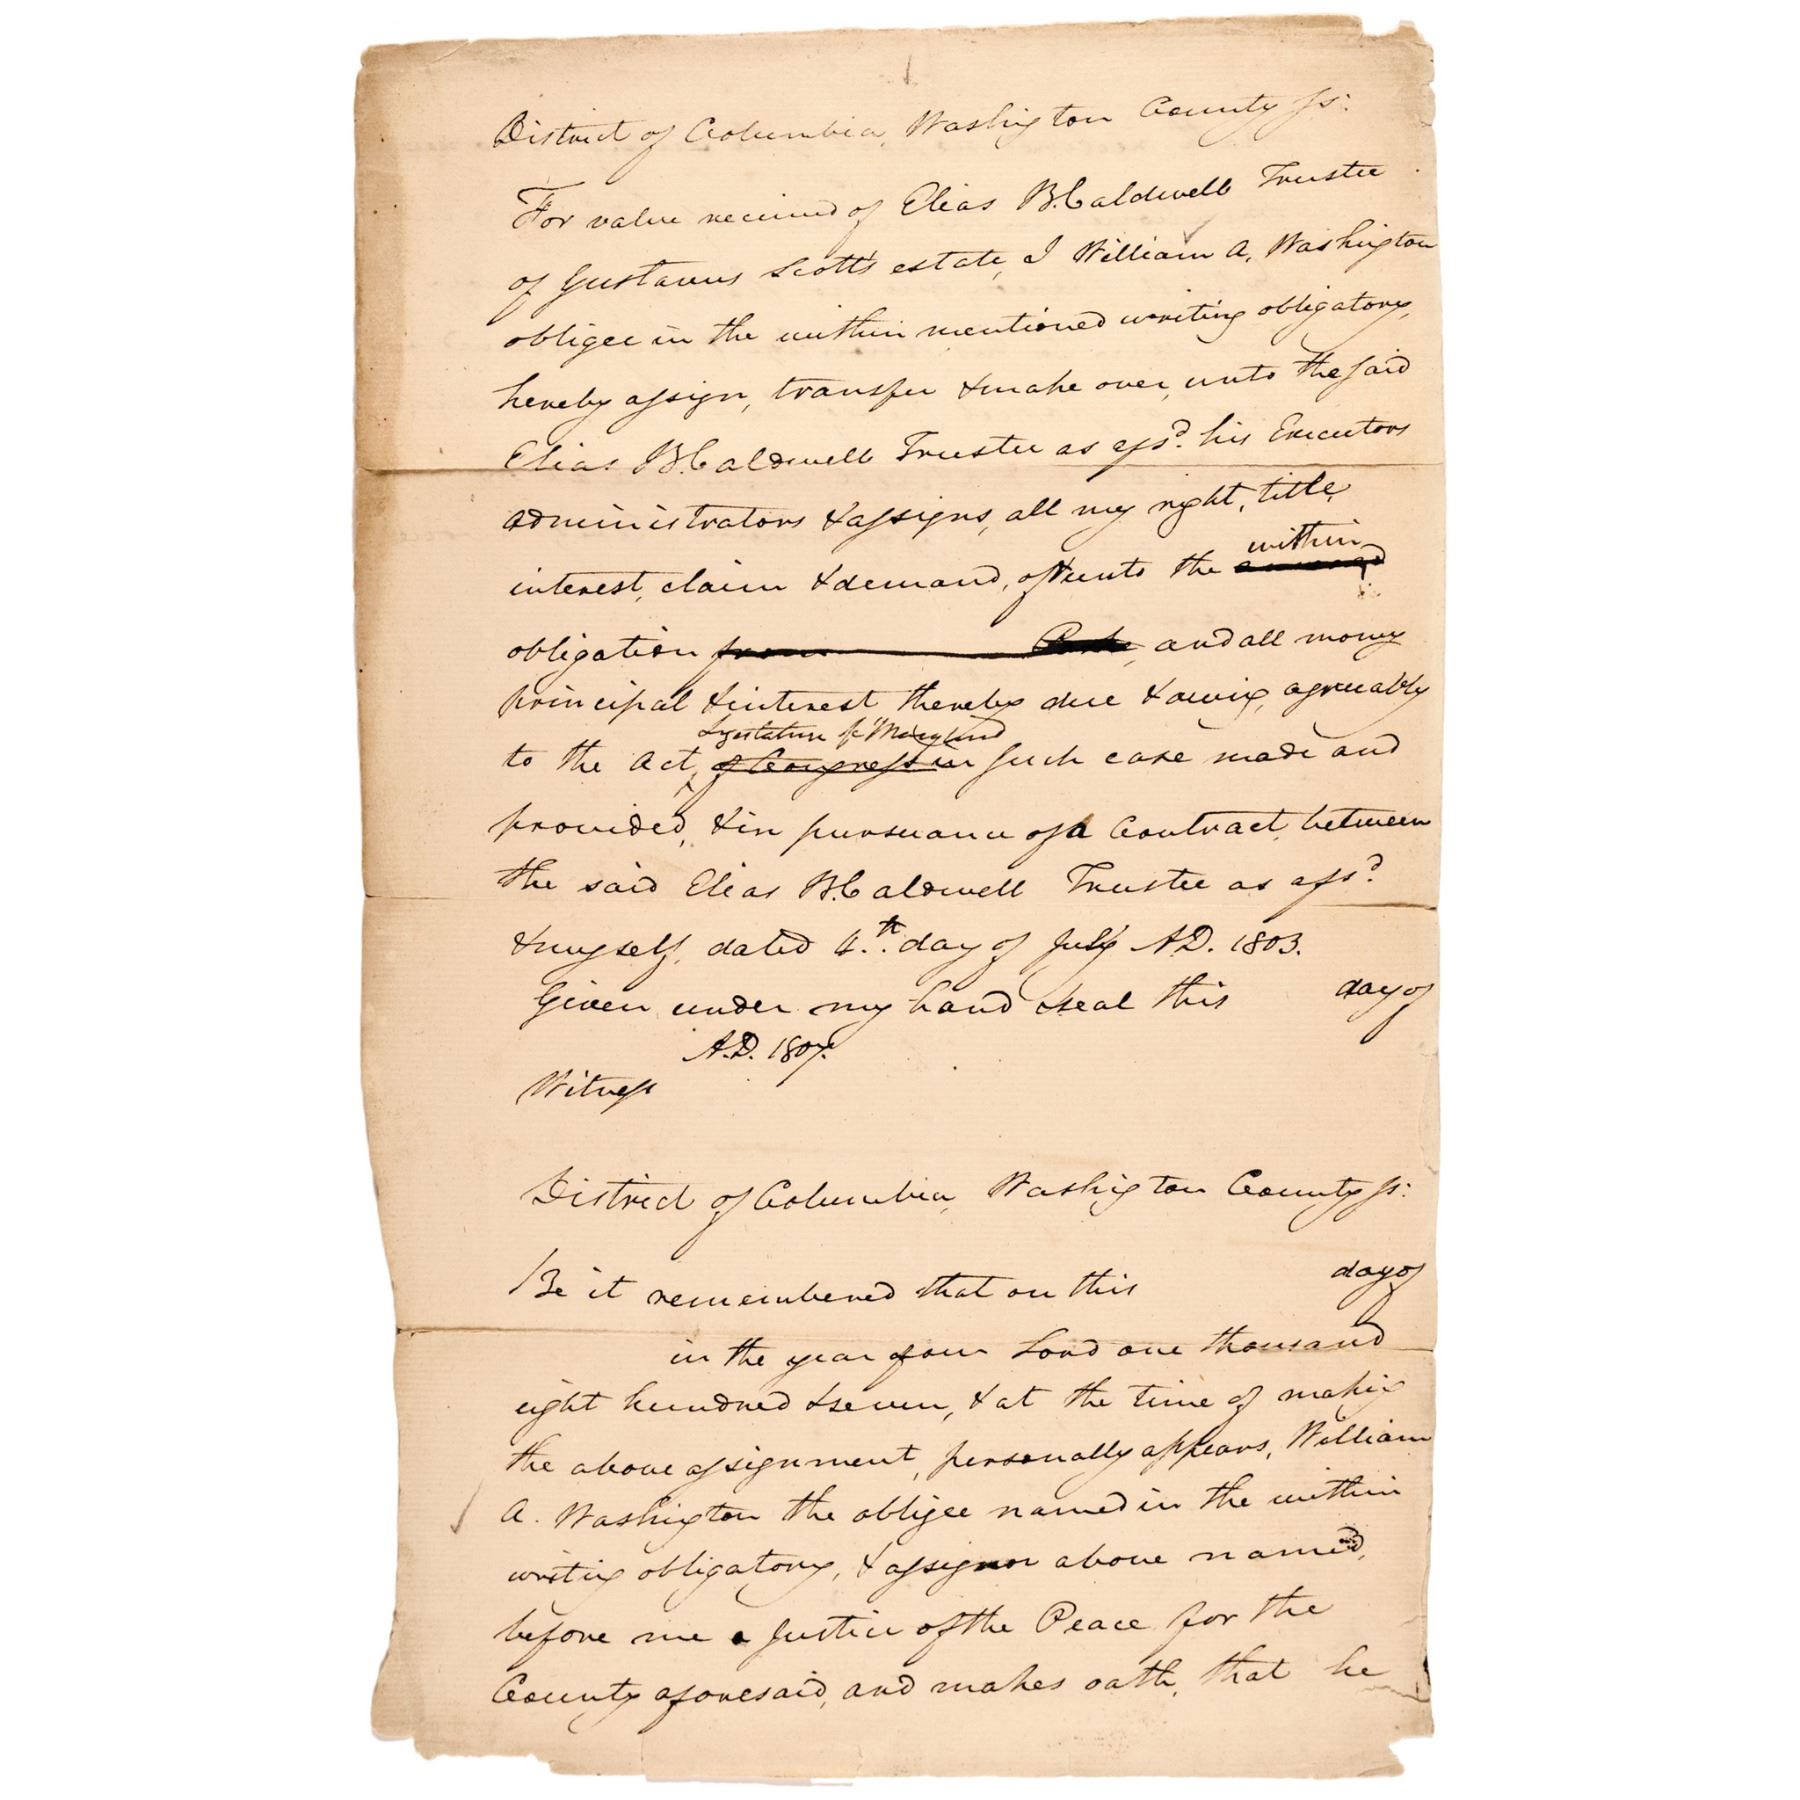 District of Columbia, Washington County ss:
For value received of Elias B. Caldwell Trustee
of Gustavus Scott's estate, I William A. Washington
obligee in the within mentioned writing obligatory,
hereby assign, transfer & make over, unto the said
Elias B. Caldwell Trustee as afsd. his Executors
administrators & assigns, all my right, title,
within
interest, claim & demand, of & unto the
obligation from , and all money
principal & interest thereby due & owing, agreeably
Legislature of Maryland
to the Act, of Congress in such case made and
provided, & in pursuance of a Contract, between
the said Elias B. Caldwell Trustee as afsd.
& myself, dated 4.th day of July A.D. 1803.
Given under my hand & seal this day of
A.D. 1807.
Witness
District of Columbia, Washington County ss:
Be it remembered that on this day of
in the year of our Lord one thousand
eight hundred & seven, & at the time of making
the above assignment, personally appears, William
A. Washington the obligee named in the within
writing obligatory, & assignor above named,
before me a Justice of the Peace for the
County aforesaid, and makes oath, that he